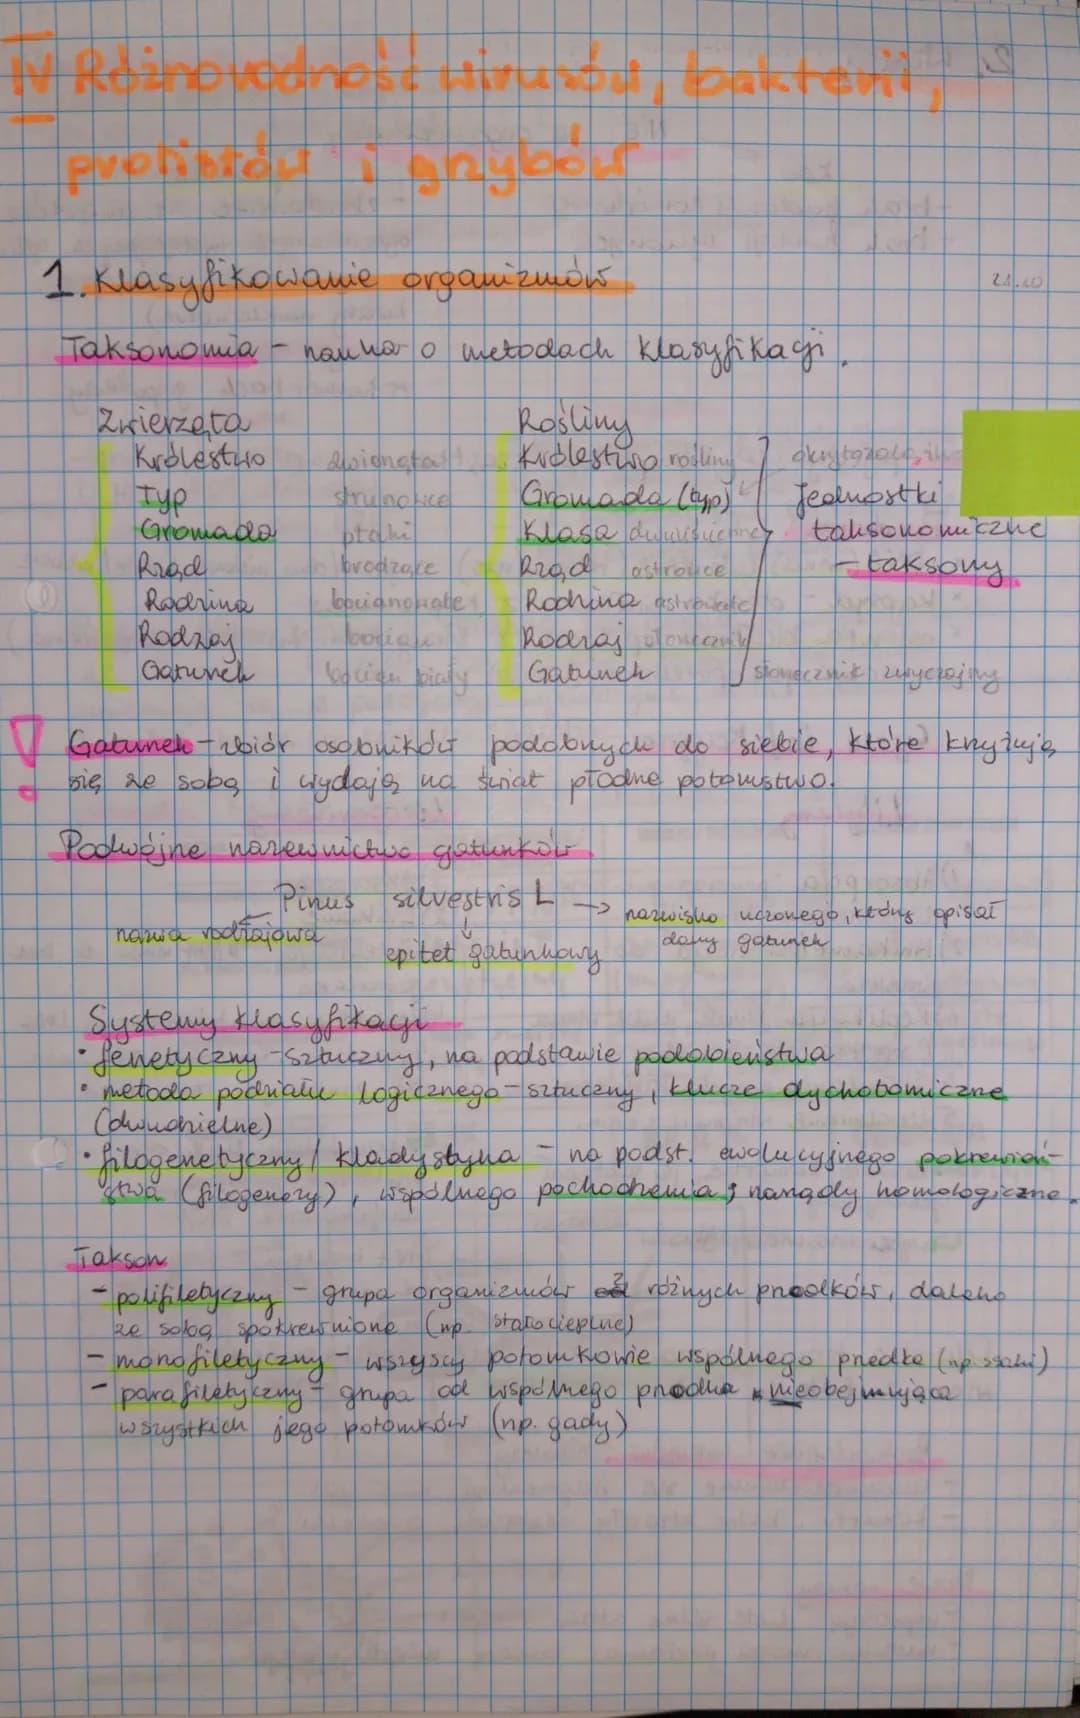 IV Różnorodność wirusów, bakterii,
protistów i grzybów
1. Klasyfikowanie organizmów
21.10
Taksonomia - nauka o metodach klasyfikacji.
Zwierzęta Rośliny
Królestwo zwierzęta Królestwo rośliny okrytozalążk
Typ strunowce Gromada (typ) Jednostki
Gromada ptaki Klasa dwuliścienne taksonomiczne
Rząd brodzące Rząd astrowce - taksony
Rodzina bocianowate Rodzina astrowate
Rodzaj bocian Rodzaj słonecznik
Gatunek bocian biały Gatunek słonecznik zwyczajny
! Gatunek - zbiór osobników podobnych do siebie, które krzyżują
się ze sobą i wydają na świat płodne potomstwo.
Podwójne nazewnictwo gatunków
Pinus silvestris L → nazwisko uczonego, który opisał
nazwa rodzajowa dany gatunek
epitet gatunkowy
Systemy klasyfikacji
• fenetyczny - sztuczny, na podstawie podobieństwa
• metoda podziału logicznego - sztuczny, klucze dychotomiczne
(dwudzielne)
• filogenetyczny / kladystyka - na podst. ewolucyjnego pokrewień-
stwa (filogenezy), wspólnego pochodzenia; narządy homologiczne.
Takson
- polifiletyczny - grupa organizmów z różnych przodków, daleko
ze sobą spokrewnione (np. stałocieplne)
- monofiletyczny - wszyscy potomkowie wspólnego przodka (np. ssaki)
- parafiletyczny - grupa od wspólnego przodka nieobejmująca
wszystkich jego potomków (np. gady)